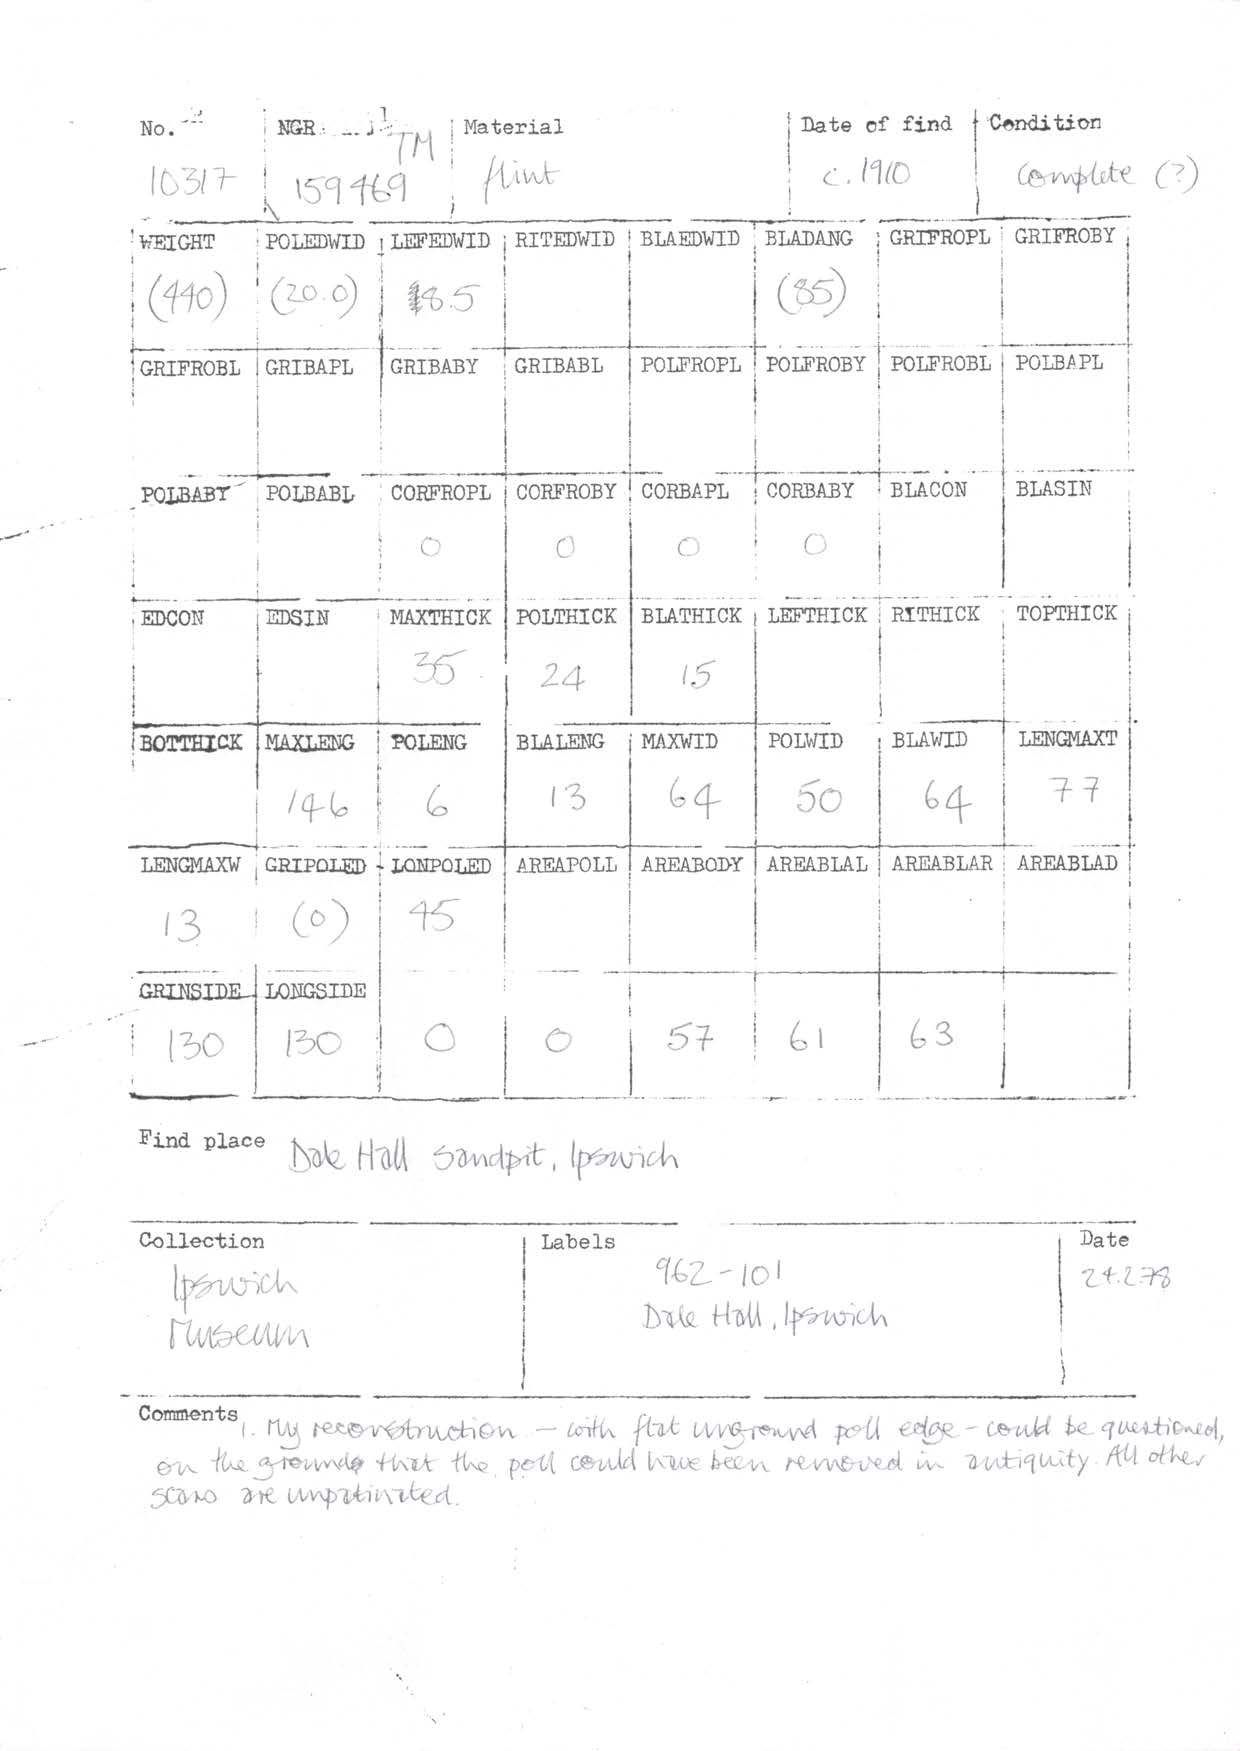 No. NGR Material Date of find Condition
10317 TM 159469 flint c. 1910 complete (?)
WEIGHT POLEDWID LEFEDWID RITEDWID BLAEDWID BLADANG GRIFROPL GRIFROBY
(440) (20.0) 8.5 (85)
GRIFROBL GRIBAPL GRIBABY GRIBABL POLFROPL POLFROBY POLFROBL POLBAPL
POLBABY POLBABL CORFROPL CORFROBY CORBAPL CORBABY BLACON BLASIN
0 0 0 0
EDCON EDSIN MAXTHICK POLTHICK BLATHICK LEFTHICK RITHICK TOPTHICK
35 24 15
BOTTHICK MAXLENG POLENG BLALENG MAXWID POLWID BLAWID LENGMAXT
146 6 13 64 50 64 77
LENGMAXW GRIPOLED LONPOLED AREAPOLL AREABODY AREABLAL AREABLAR AREABLAD
13 (0) 45
GRINSIDE LONGSIDE
130 130 0 0 57 61 63
Find place Dale Hall Sandpit, Ipswich
Collection Labels Date
Ipswich 962-101 24.2.78
Museum Dale Hall, Ipswich
Comments 1. My reconstruction – with flat unground poll edge – could be questioned,
on the grounds that the poll could have been removed in antiquity. All other
scars are unpatinated.